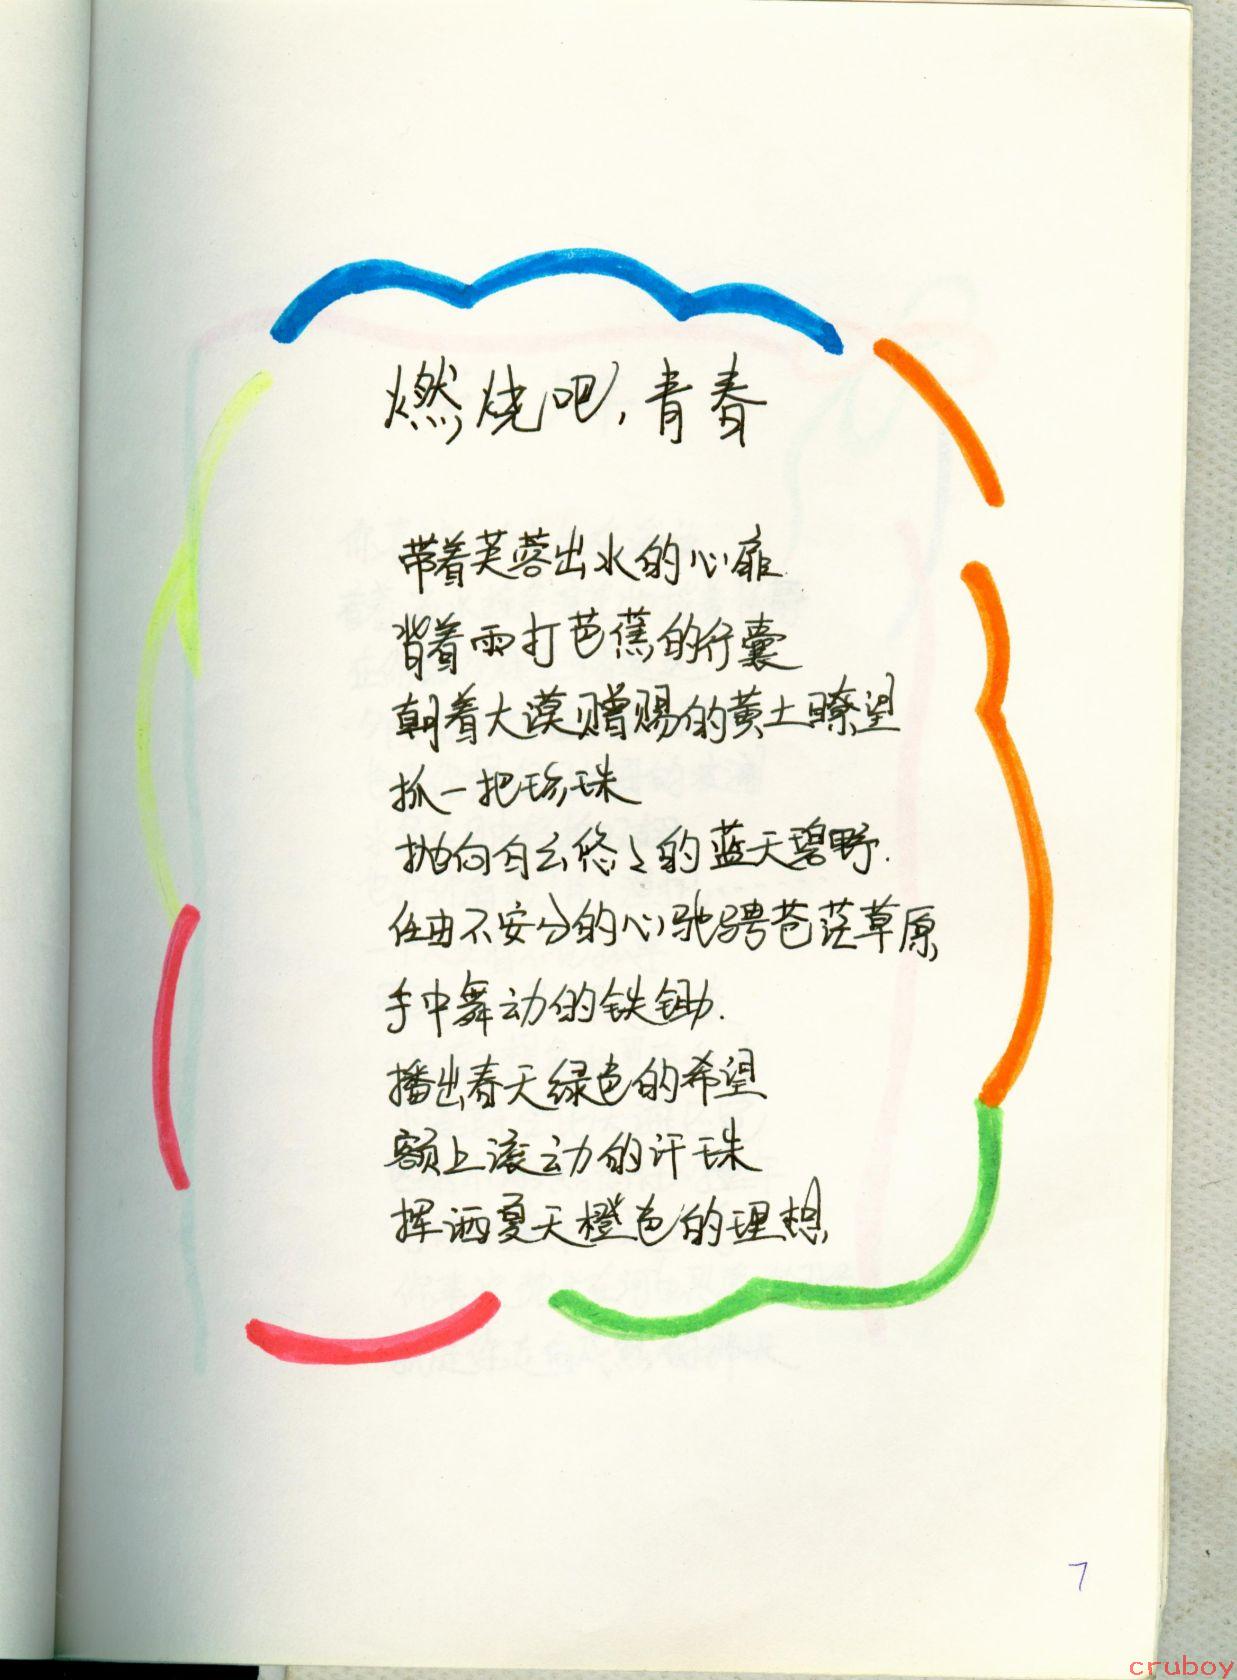 燃烧吧,青春
带着芙蓉出水的心扉
背着雨打芭蕉的行囊
朝着大漠赠赐的黄土瞭望
抓一把珍珠
抛向白云悠々的蓝天碧野.
任由不安分的心驰骋苍茫草原
手中舞动的铁锄.
播出春天绿色的希望
额上滚动的汗珠
挥洒夏天橙色的理想
7
cruboy